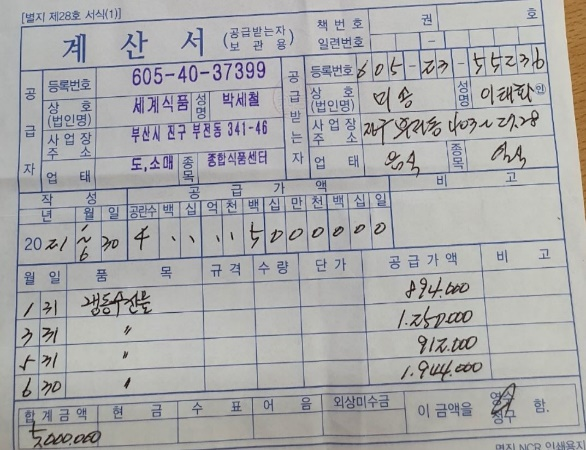 [별지 제28호 서식(1)]
계 산 서 (공급받는자 보관용)
책 번 호 권 호
일련번호 - -
공급자
등록번호 605-40-37399
상 호 (법인명) 세계식품 성명 박세철
사업장 주 소 부산시 진구 부전동 341-46
업 태 도,소매 종목 종합식품센터
공급받는자
등록번호 605-23-55236
상 호 (법인명) 미송 성명 이태환 인
사업장 주 소
업 태 음식 종목
작 성 공 급 가 액 비 고
년 월 일 공란수 백 십 억 천 백 십 만 천 백 십 일
2021 1~6 30 4 5 0 0 0 0 0 0
월 일 품 목 규 격 수 량 단 가 공 급 가 액 비 고
1 31 냉동수산물 894.000
3 31 〃 1.250.000
5 31 〃 912.000
6 30 〃 1.944.000
합계금액 현 금 수 표 어 음 외상미수금 이 금액을 영수 청구 함.
5,000.000